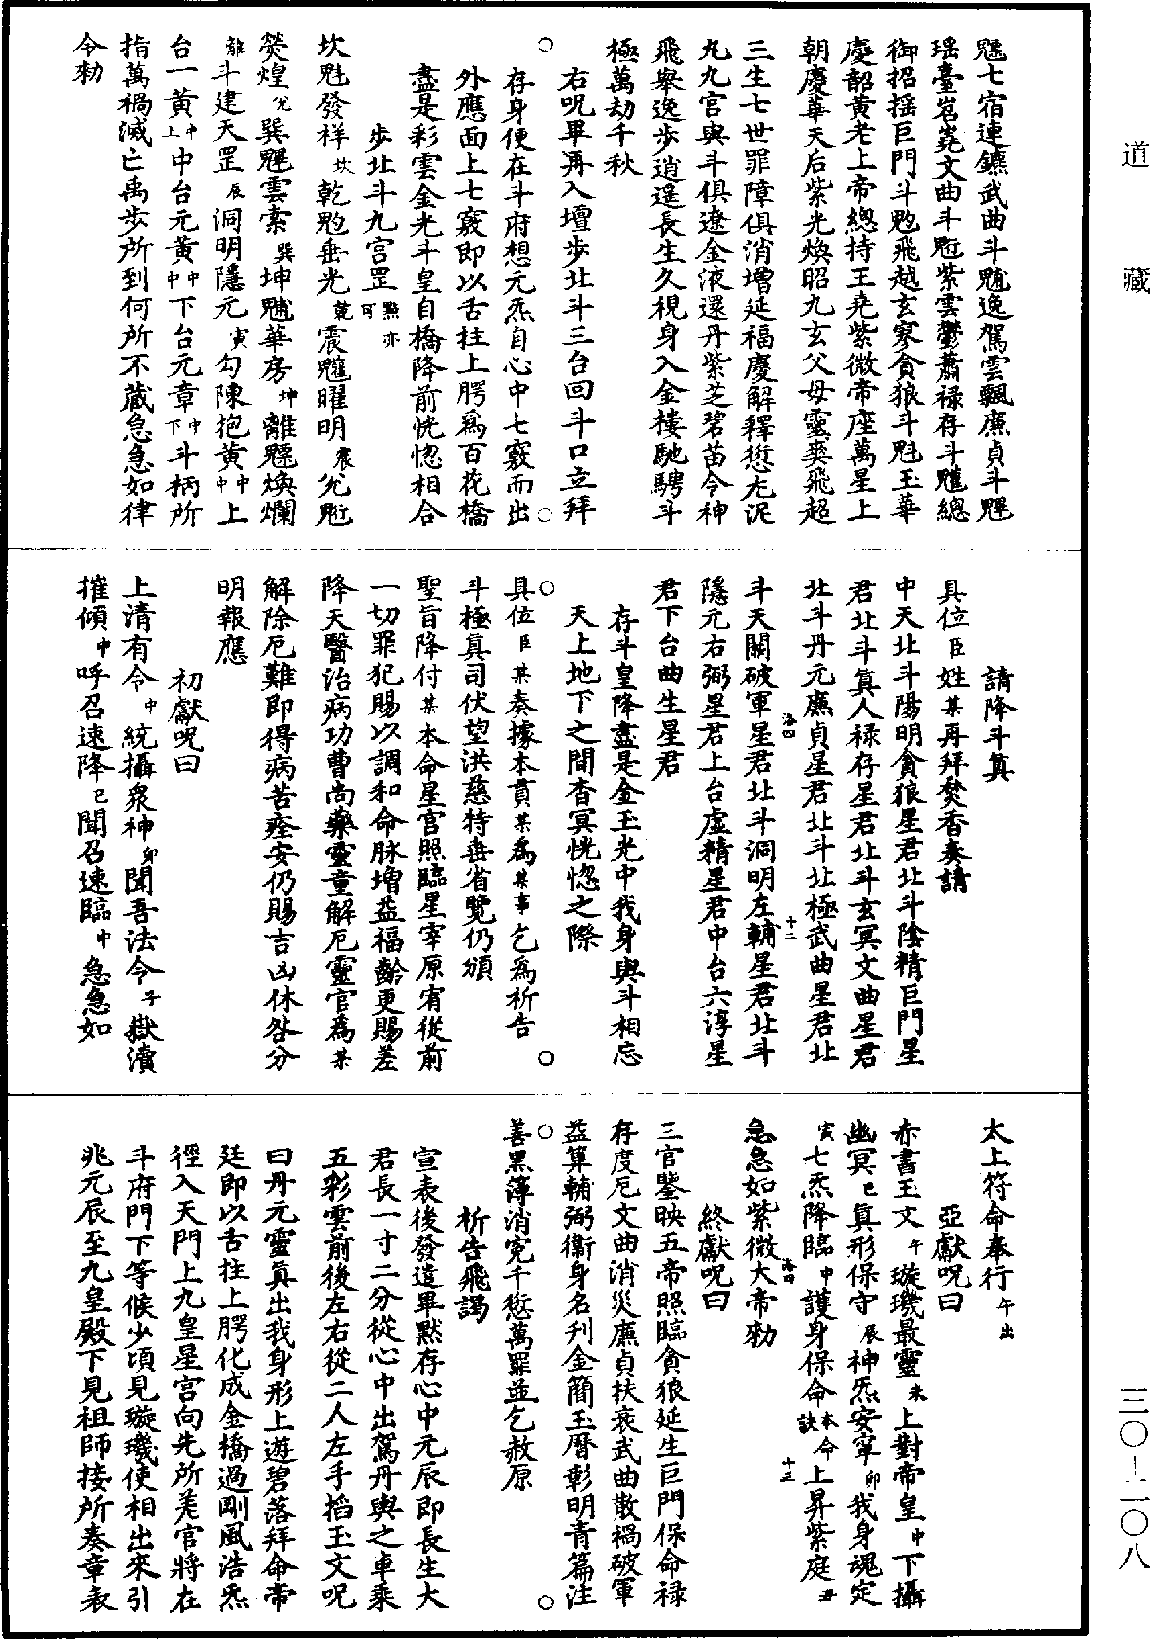 道藏
三〇—二〇八
魒七宿連鑣武曲斗魓逸駕雲飄廉貞斗䰢
瑶臺岧嶤文曲斗魁紫雲鬱蕭祿存斗䰫總
御招摇巨門斗䰡飛越玄寥貪狼斗魁玉華
慶韶黄老上帝總持王堯紫微帝座萬星上
朝慶華天后紫光煥昭九玄父母靈爽飛超
三生七世罪障俱消增延福慶解釋愆尤泥
九九宫與斗俱遼金液還丹紫芝碧苗令神
飛舉逸步逍遥長生久視身入金樓馳騁斗
極萬劫千秋
右呪畢再入壇步北斗三台回斗口立拜
存身便在斗府想元炁自心中七竅而出
外應面上七竅即以舌拄上腭爲百花橋
盡是彩雲金光斗皇自橋降前恍惚相合
步北斗九宫罡默亦可
坎魁發祥坎乾䰡垂光乾震䰫曜明震兊魁
熒煌兊巽䰢雲索巽坤魓華房坤離魒煥爛
離斗建天罡辰洞明隱元寅勾陳抱黄中上
台一黄中上中台元黄中中下台元章中下斗柄所
指萬禍滅亡禹步所到何所不藏急急如律
令勑
請降斗真
具位臣姓某再拜焚香奏請
中天北斗陽明貪狼星君北斗陰精巨門星
君北斗真人祿存星君北斗玄冥文曲星君
北斗丹元廉貞星君北斗北極武曲星君北
斗天關破軍星君北斗洞明左輔星君北斗
隱元右弼星君上台虚精星君中台六淳星
君下台曲生星君
存斗皇降盡是金玉光中我身與斗相忘
天上地下之間杳冥恍惚之際
具位臣某奏據本貫某爲某事乞爲祈告
斗極真司伏望洪慈特垂省覽仍頒
聖旨降付某本命星宫照臨星宰原宥從前
一切罪犯賜以調和命脉增益福齡更賜差
降天醫治病功曹尚藥靈童解厄靈官爲某
解除厄難即得病苦痊安仍賜吉凶休咎分
明報應
初獻呪曰
上清有令中統攝衆神卯聞吾法令子嶽瀆
摧傾中呼召速降巳聞召速臨中急急如
太上符命奉行午出
亞獻呪曰
赤書玉文午璇璣最靈未上對帝皇中下攝
幽冥巳真形保守辰神炁安寧卯我身魂定
寅七炁降臨中護身保命本命訣上昇紫庭丑
急急如紫微大帝勑
終獻呪曰
三官鑒映五帝照臨貪狼延生巨門保命祿
存度厄文曲消災廉貞扶衰武曲散禍破軍
益算輔弼衛身名刋金簡玉曆彰明青篇注
善黑簿消寃千愆萬罪並乞赦原
祈告飛謁
宣表後發遣畢默存心中元辰即長生大
君長一寸二分從心中出駕丹輿之車乘
五彩雲前後左右從二人左手掐玉文呪
曰丹元靈真出我身形上遊碧落拜命帝
廷即以舌拄上腭化成金橋過剛風浩炁
徑入天門上九皇星宫向先所差官將在
斗府門下等候少頃見璇璣使相出來引
兆元辰至九皇殿下見祖師接所奏章表